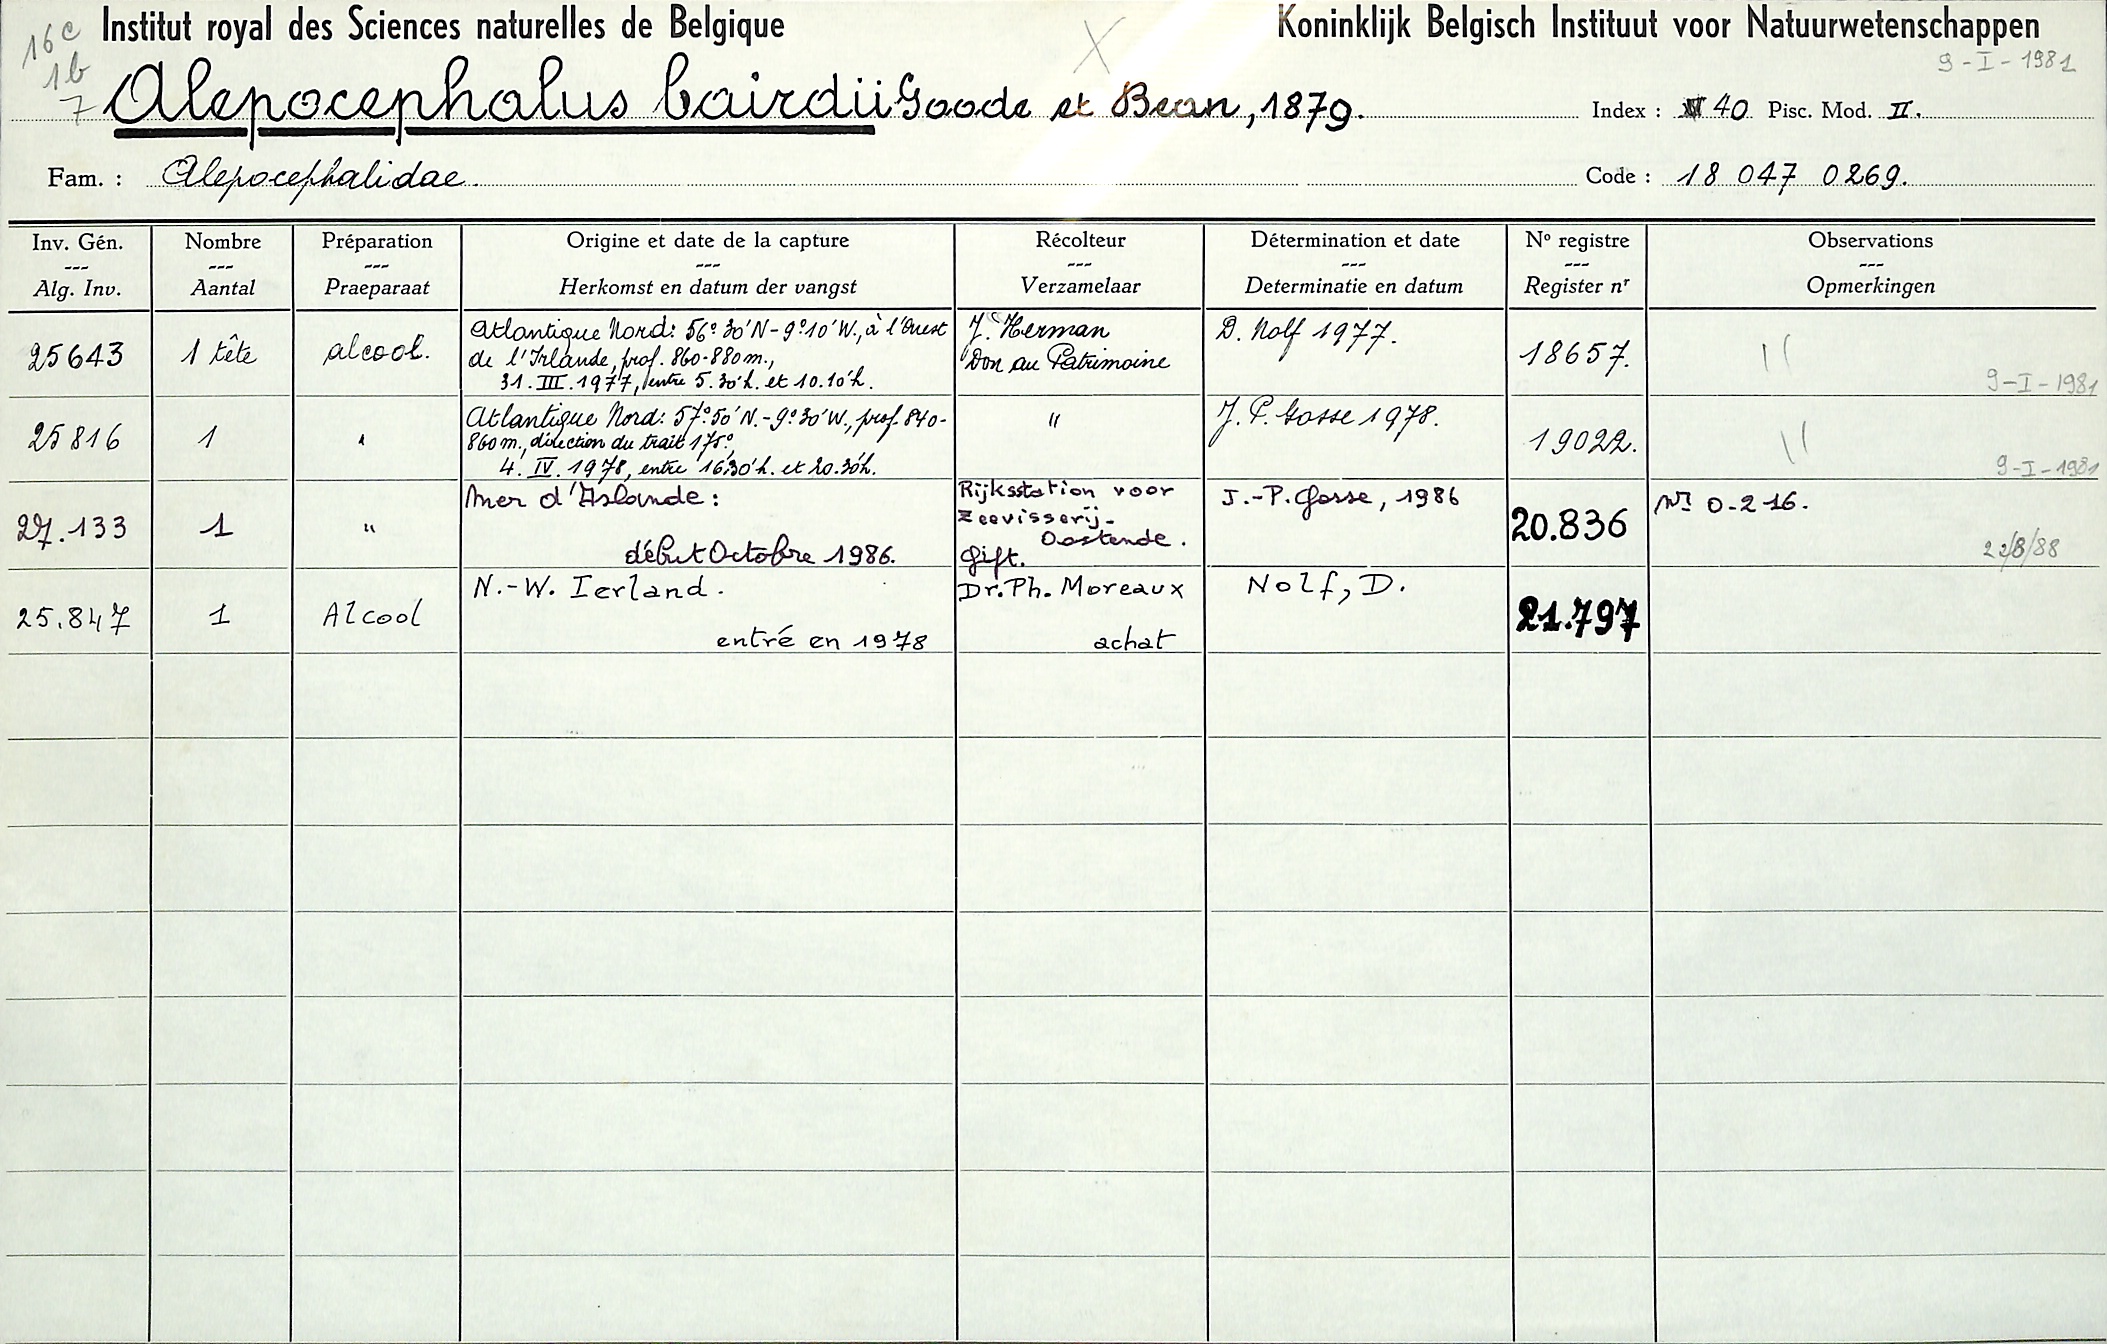 Institut royal des Sciences naturelles de Belgique
Koninklijk Belgisch Instituut voor Natuurwetenschappen
16c
1b
7
X
9-I-1981
Alepocephalus bairdii Goode et Bean, 1879.
Index : 40 Pisc. Mod. II.
Fam. : Alepocephalidae.
Code : 18 047 0269.
Inv. Gén. Nombre Préparation Origine et date de la capture Récolteur Détermination et date No registre Observations
--- --- --- --- --- --- --- ---
Alg. Inv. Aantal Praeparaat Herkomst en datum der vangst Verzamelaar Determinatie en datum Register nr Opmerkingen
25643
1 tête
alcool.
Atlantique Nord: 56°30'N-9°10'W., à l'Ouest
de l'Irlande, prof. 860-880m.,
31.III.1977, entre 5.30'h. et 10.10'h.
J. Herman
Don au Patrimoine
D. Nolf 1977.
18657.
9-I-1981
25816
1
"
Atlantique Nord: 57°50'N.-9°30'W., prof. 840-
860m., direction du trait 175°.
4. IV. 1978, entre 16.30'h. et 20.30'h.
"
J.P. Gosse 1978.
19022.
9-I-1981
27.133
1
"
Mer d'Islande:
début Octobre 1986.
Rijksstation voor
Zeevisserij-
Oostende.
Gift.
J.-P. Gosse, 1986
20.836
Nr 0-2-16.
22/8/88
25.847
1
Alcool
N.-W. Ierland.
entré en 1978
Dr. Ph. Moreaux
achat
Nolf, D.
21.797